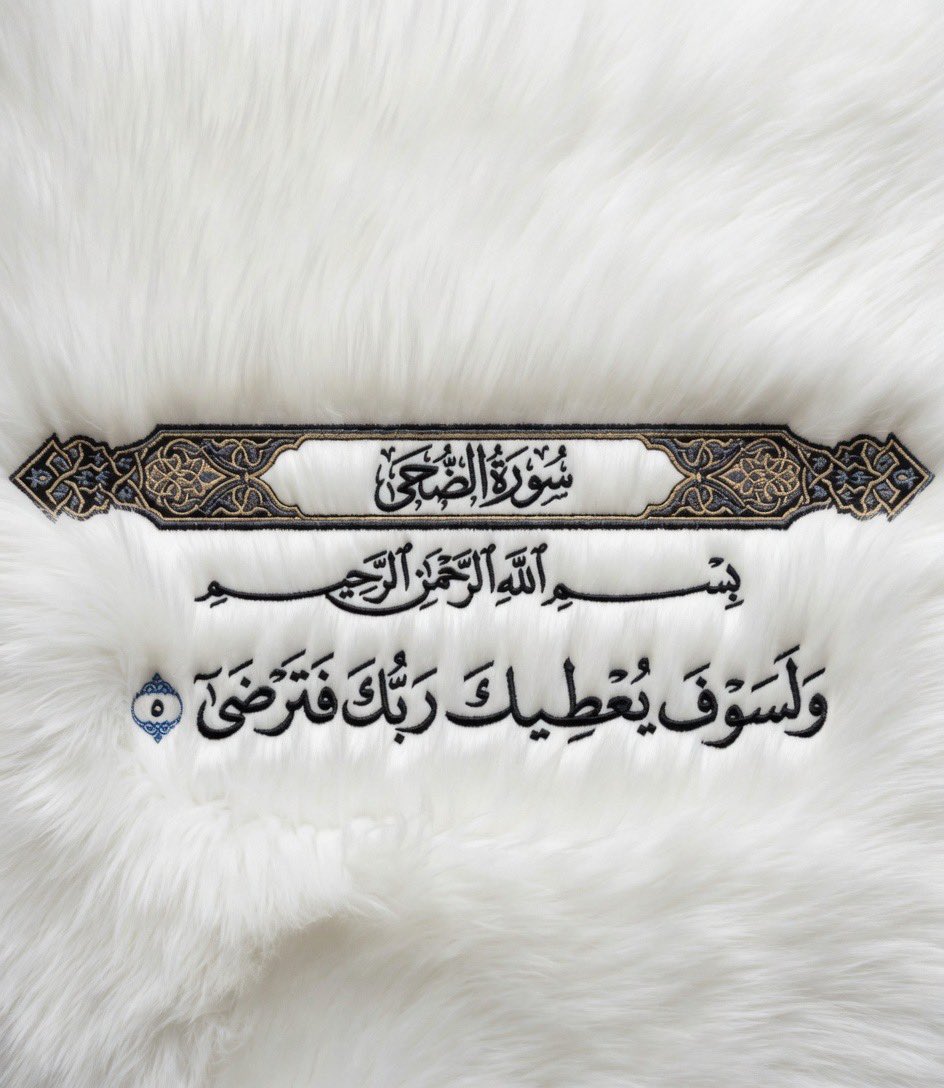 سُورَةُ الضُّحَى
بِسْمِ ٱللَّهِ ٱلرَّحْمَٰنِ ٱلرَّحِيمِ
وَلَسَوْفَ يُعْطِيكَ رَبُّكَ فَتَرْضَىٰٓ ٥